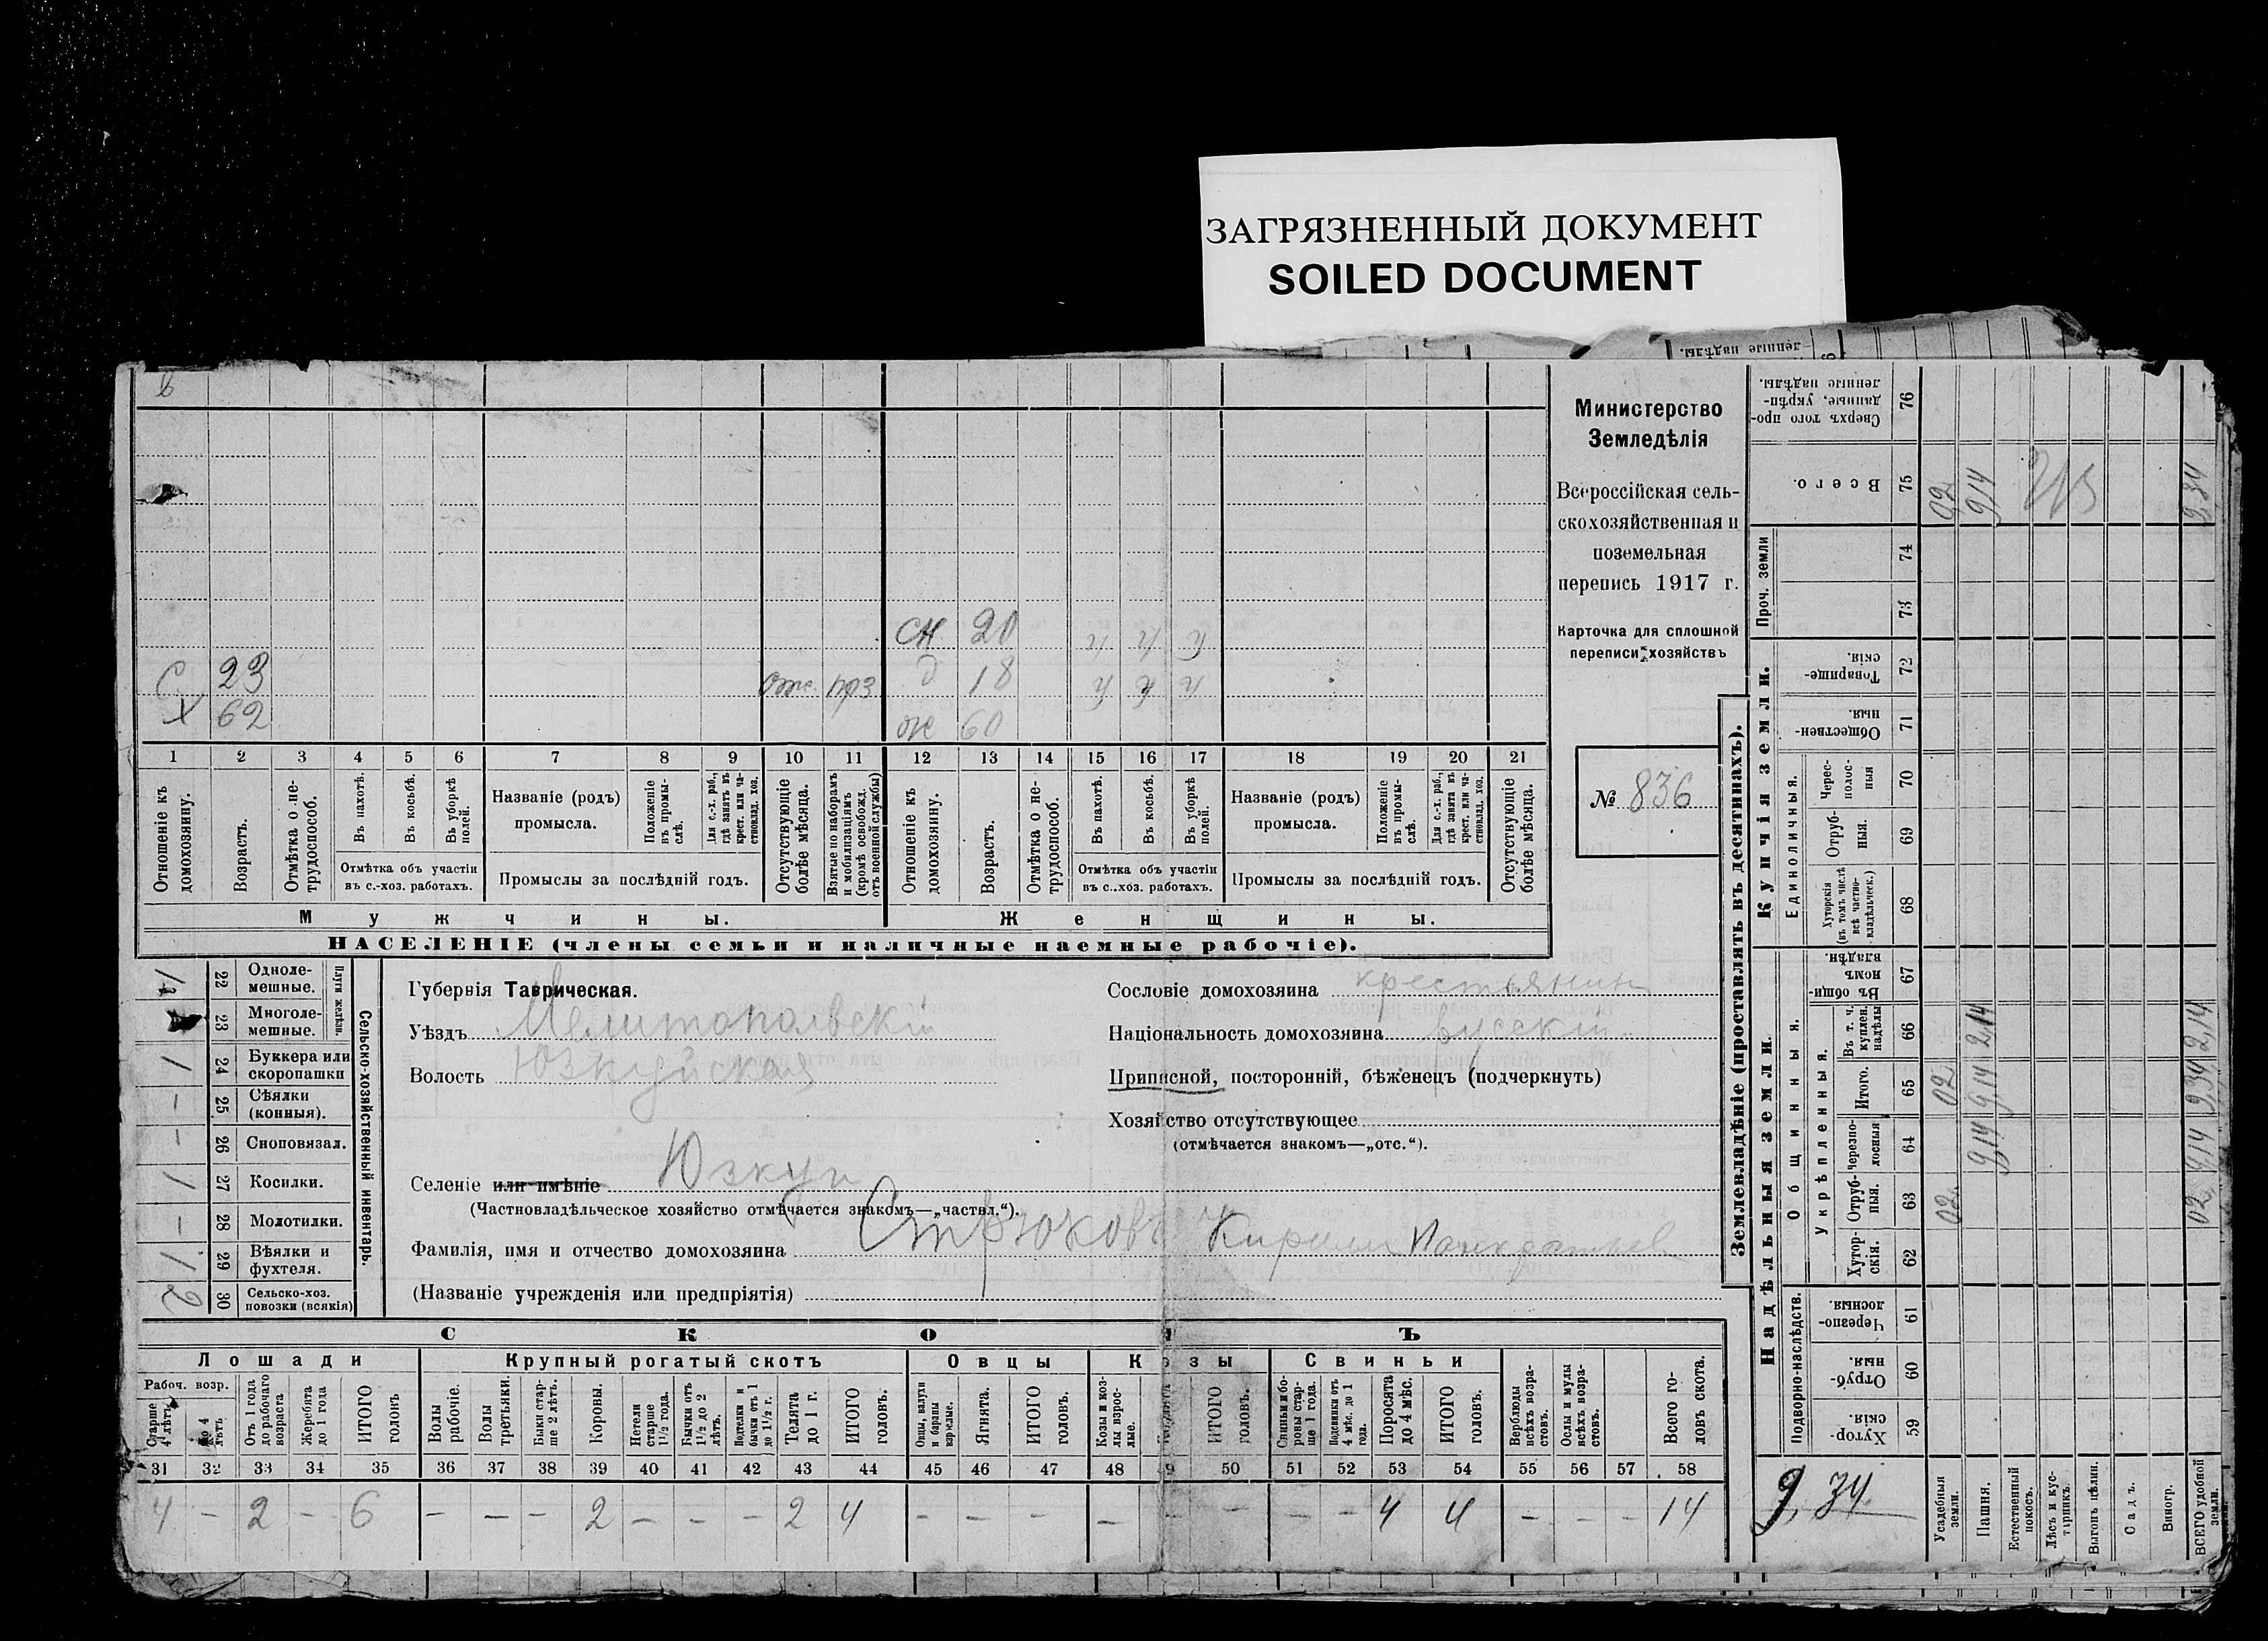 ЗАГРЯЗНЕННЫЙ ДОКУМЕНТ
SOILED DOCUMENT
Министерство
Земледѣлія
Всероссійская сель-
скохозяйственная и
поземельная
перепись 1917 г.
Карточка для сплошной
переписи хозяйствъ
№ 836
СН 20 П П П
С 23 отс. 1 Д 18 П П П
Х 62 Ж 60
1 2 3 4 5 6 7 8 9 10 11 12 13 14 15 16 17 18 19 20 21
Отношеніе къ домохозяину.
Возрастъ.
Отмѣтка о не-трудоспособ.
Въ пахотѣ.
Въ косьбѣ.
Въ уборкѣ полей.
Отмѣтка объ участіи
въ с.-хоз. работахъ.
Названіе (родъ)
промысла.
Положеніе въ промы-слѣ.
Для с.-х. раб., гдѣ занятъ въ крест. или ча-стновлад. хоз.
Промыслы за послѣдній годъ.
Отсутствующіе болѣе мѣсяца.
Взятые по наборамъ и мобилизаціямъ (кромѣ освобожд. отъ военной службы)
Отношеніе къ домохозяину.
Возрастъ.
Отмѣтка о не-трудоспособ.
Въ пахотѣ.
Въ косьбѣ.
Въ уборкѣ полей.
Отмѣтка объ участіи
въ с..хоз. работахъ.
Названіе (родъ)
промысла.
Положеніе въ промы-слѣ.
Для с.-х. раб., гдѣ занята въ крест. или ча-стновлад. хоз.
Промыслы за послѣдній годъ.
Отсутствующіе болѣе мѣсяца.
Мужчины. Женщины.
НАСЕЛЕНІЕ (члены семьи и наличные наемные рабочіе).
Сельско-хозяйственный инвентарь.
Плуги желѣзн.
22 Одноле-мешные.
23 Многоле-мешные.
1 24 Буккера или скоропашки
– 25 Сѣялки (конныя).
– 26 Сноповязал.
1 27 Косилки.
– 28 Молотилки.
1 29 Вѣялки и фухтеля.
2 30 Сельско-хоз. повозки (всякія)
Губернія Таврическая.
Уѣздъ Мелитопольскій
Волость Юзкуйская
Селеніе или имѣніе Юзкуи
(Частновладѣльческое хозяйство отмѣчается знакомъ—„частвл.“).
Фамилія, имя и отчество домохозяина Стрюковъ Кирилъ Панкратьев
(Названіе учрежденія или предпріятія)
Сословіе домохозяина крестьянинъ
Національность домохозяина русскій
Приписной, посторонній, бѣженецъ (подчеркнуть)
Хозяйство отсутствующее
(отмѣчается знакомъ—„отс.“).
СКОТЪ
Лошади Крупный рогатый скотъ Овцы Козы Свиньи
Рабоч. возр.
Старше 4 лѣтъ
До 4 лѣтъ
Отъ 1 года до рабочаго возраста
Жеребята до 1 года
ИТОГО головъ
Волы рабочіе.
Волы третьяки.
Быки стар-ше 2 лѣтъ.
Коровы.
Нетели старше 1½ года.
Бычки отъ 1½ до 2 лѣтъ.
Подтелки и бычки отъ 1 до 1½ г.
Телята до 1 г.
ИТОГО головъ.
Овцы, валухи и бараны взрослые.
Ягнята.
ИТОГО головъ.
Козы и коз-лы взрос-лые.
ИТОГО головъ.
Свиньи и бо-ровы стар-ше 1 года.
Подсвинки отъ 4 мѣс. до 1 года.
Поросята до 4 мѣс.
ИТОГО головъ.
Верблюды всѣхъ возра-стовъ.
Ослы и мулы всѣхъ возра-стовъ.
Всего го-ловъ скота.
31 32 33 34 35 36 37 38 39 40 41 42 43 44 45 46 47 48 49 50 51 52 53 54 55 56 57 58
4 – 2 – 6 – – – 2 – – – 2 4 – – – – – – – – 4 4 – – – 14
Землевладѣніе (проставлять въ десятинахъ).
Купчія земли.
Надѣльныя земли.
Сверхъ того про-данные, укрѣп-ленные надѣлы. 76
Всего. 75 02 9,14 9,34
Проч. земли 74 73
Товарище-скія. 72
Обществен-ныя. 71
Единоличныя.
Черес-полос-ныя 70
Отруб-ныя. 69
Хуторскія (въ томъ числѣ всѣ частно-владѣльческ.) 68
Общинныя.
Въ общин-номъ владѣн. 67
Укрѣпленныя.
Въ т. ч. куплен. надѣлы 66 2,14 2,14
Итого. 65 02 9,14 9,34
Черезпо-лосныя 64 9,14 9,14
Отруб-ныя. 63 02 02
Хутор-скія. 62
Подворно-наслѣдств.
Черезпо-лосныя. 61
Отруб-ныя. 60
Хутор-скія. 59
9,34
Усадебныя земли.
Пашня.
Естественный покосъ.
Лѣсъ и кус-тарникъ.
Выгонъ цѣлин.
Садъ.
Виногр.
ВСЕГО удобной земли.